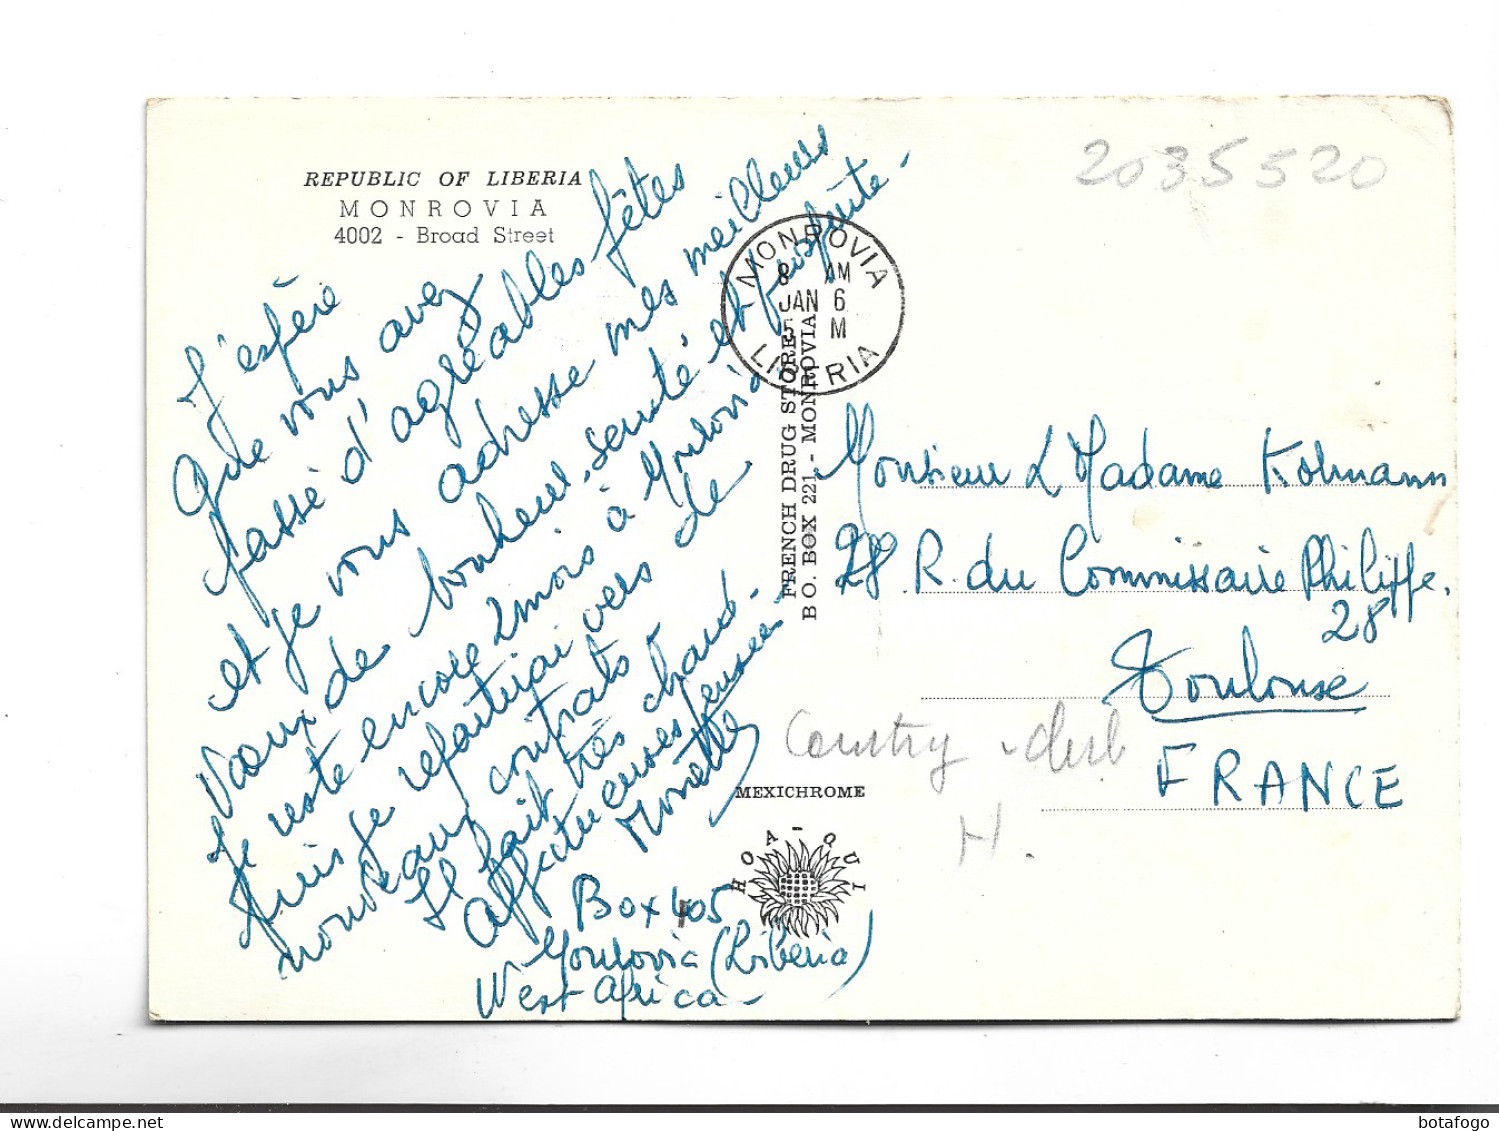 REPUBLIC OF LIBERIA
MONROVIA
4002 - Broad Street
J'espère
que vous avez
passé d'agréables fêtes
et je vous adresse mes meilleurs
vœux de bonheur, santé et prospérité.
Je reste encore 2 mois à Monrovia
puis je repartirai vers de
nouveaux contrats
Il fait très chaud.
Affectueuses pensées
Box 405
Monrovia (Liberia)
West Africa
MONROVIA
8 AM
JAN 6
5 M
LIBERIA
FRENCH DRUG STORE
B O. BOX 221 - MONROVIA
MEXICHROME
HOA-QUI
2035520
Monsieur & Madame Kolmann
28 R. du Commissaire Philippe.
28
Toulouse
FRANCE
Country
H.
botafogo